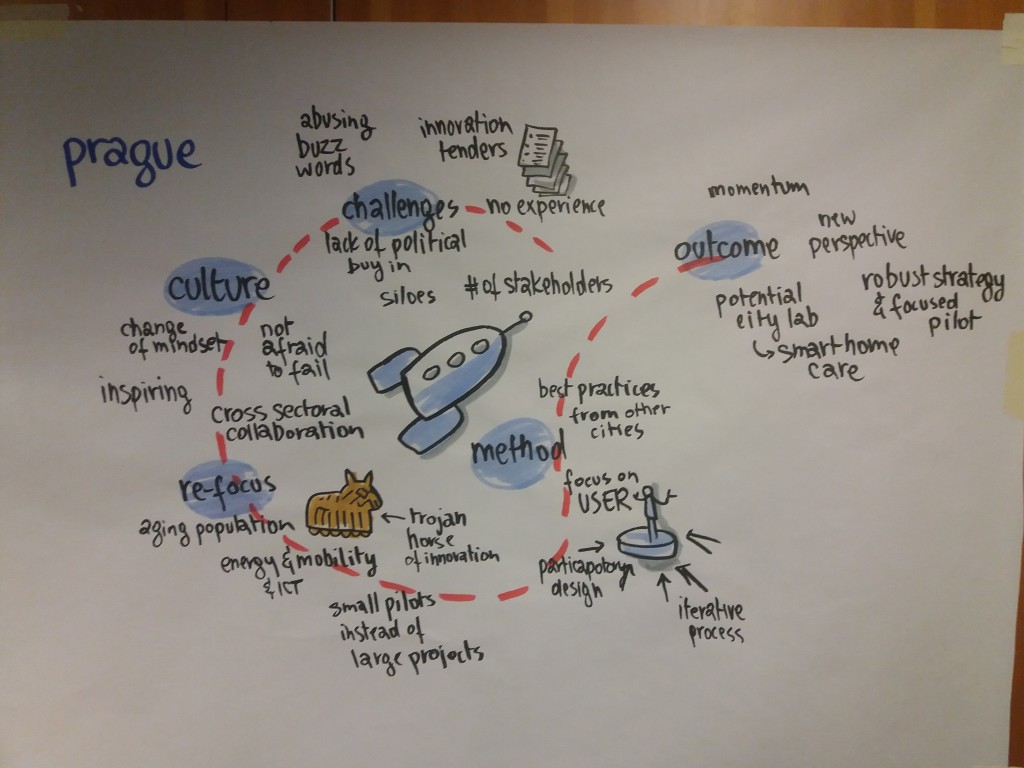 prague
abusing
buzz
words
innovation
tenders
challenges
no experience
lack of political
buy in
siloes
# of stakeholders
culture
change
of mindset
not
afraid
to fail
inspiring
cross sectoral
collaboration
re-focus
aging population
energy & mobility
& ICT
trojan
horse
of innovation
small pilots
instead of
large projects
method
best practices
from other
cities
focus on
USER
particapotory
design
iterative
process
outcome
momentum
new
perspective
potential
city lab
smart home
care
robust strategy
& focused
pilot